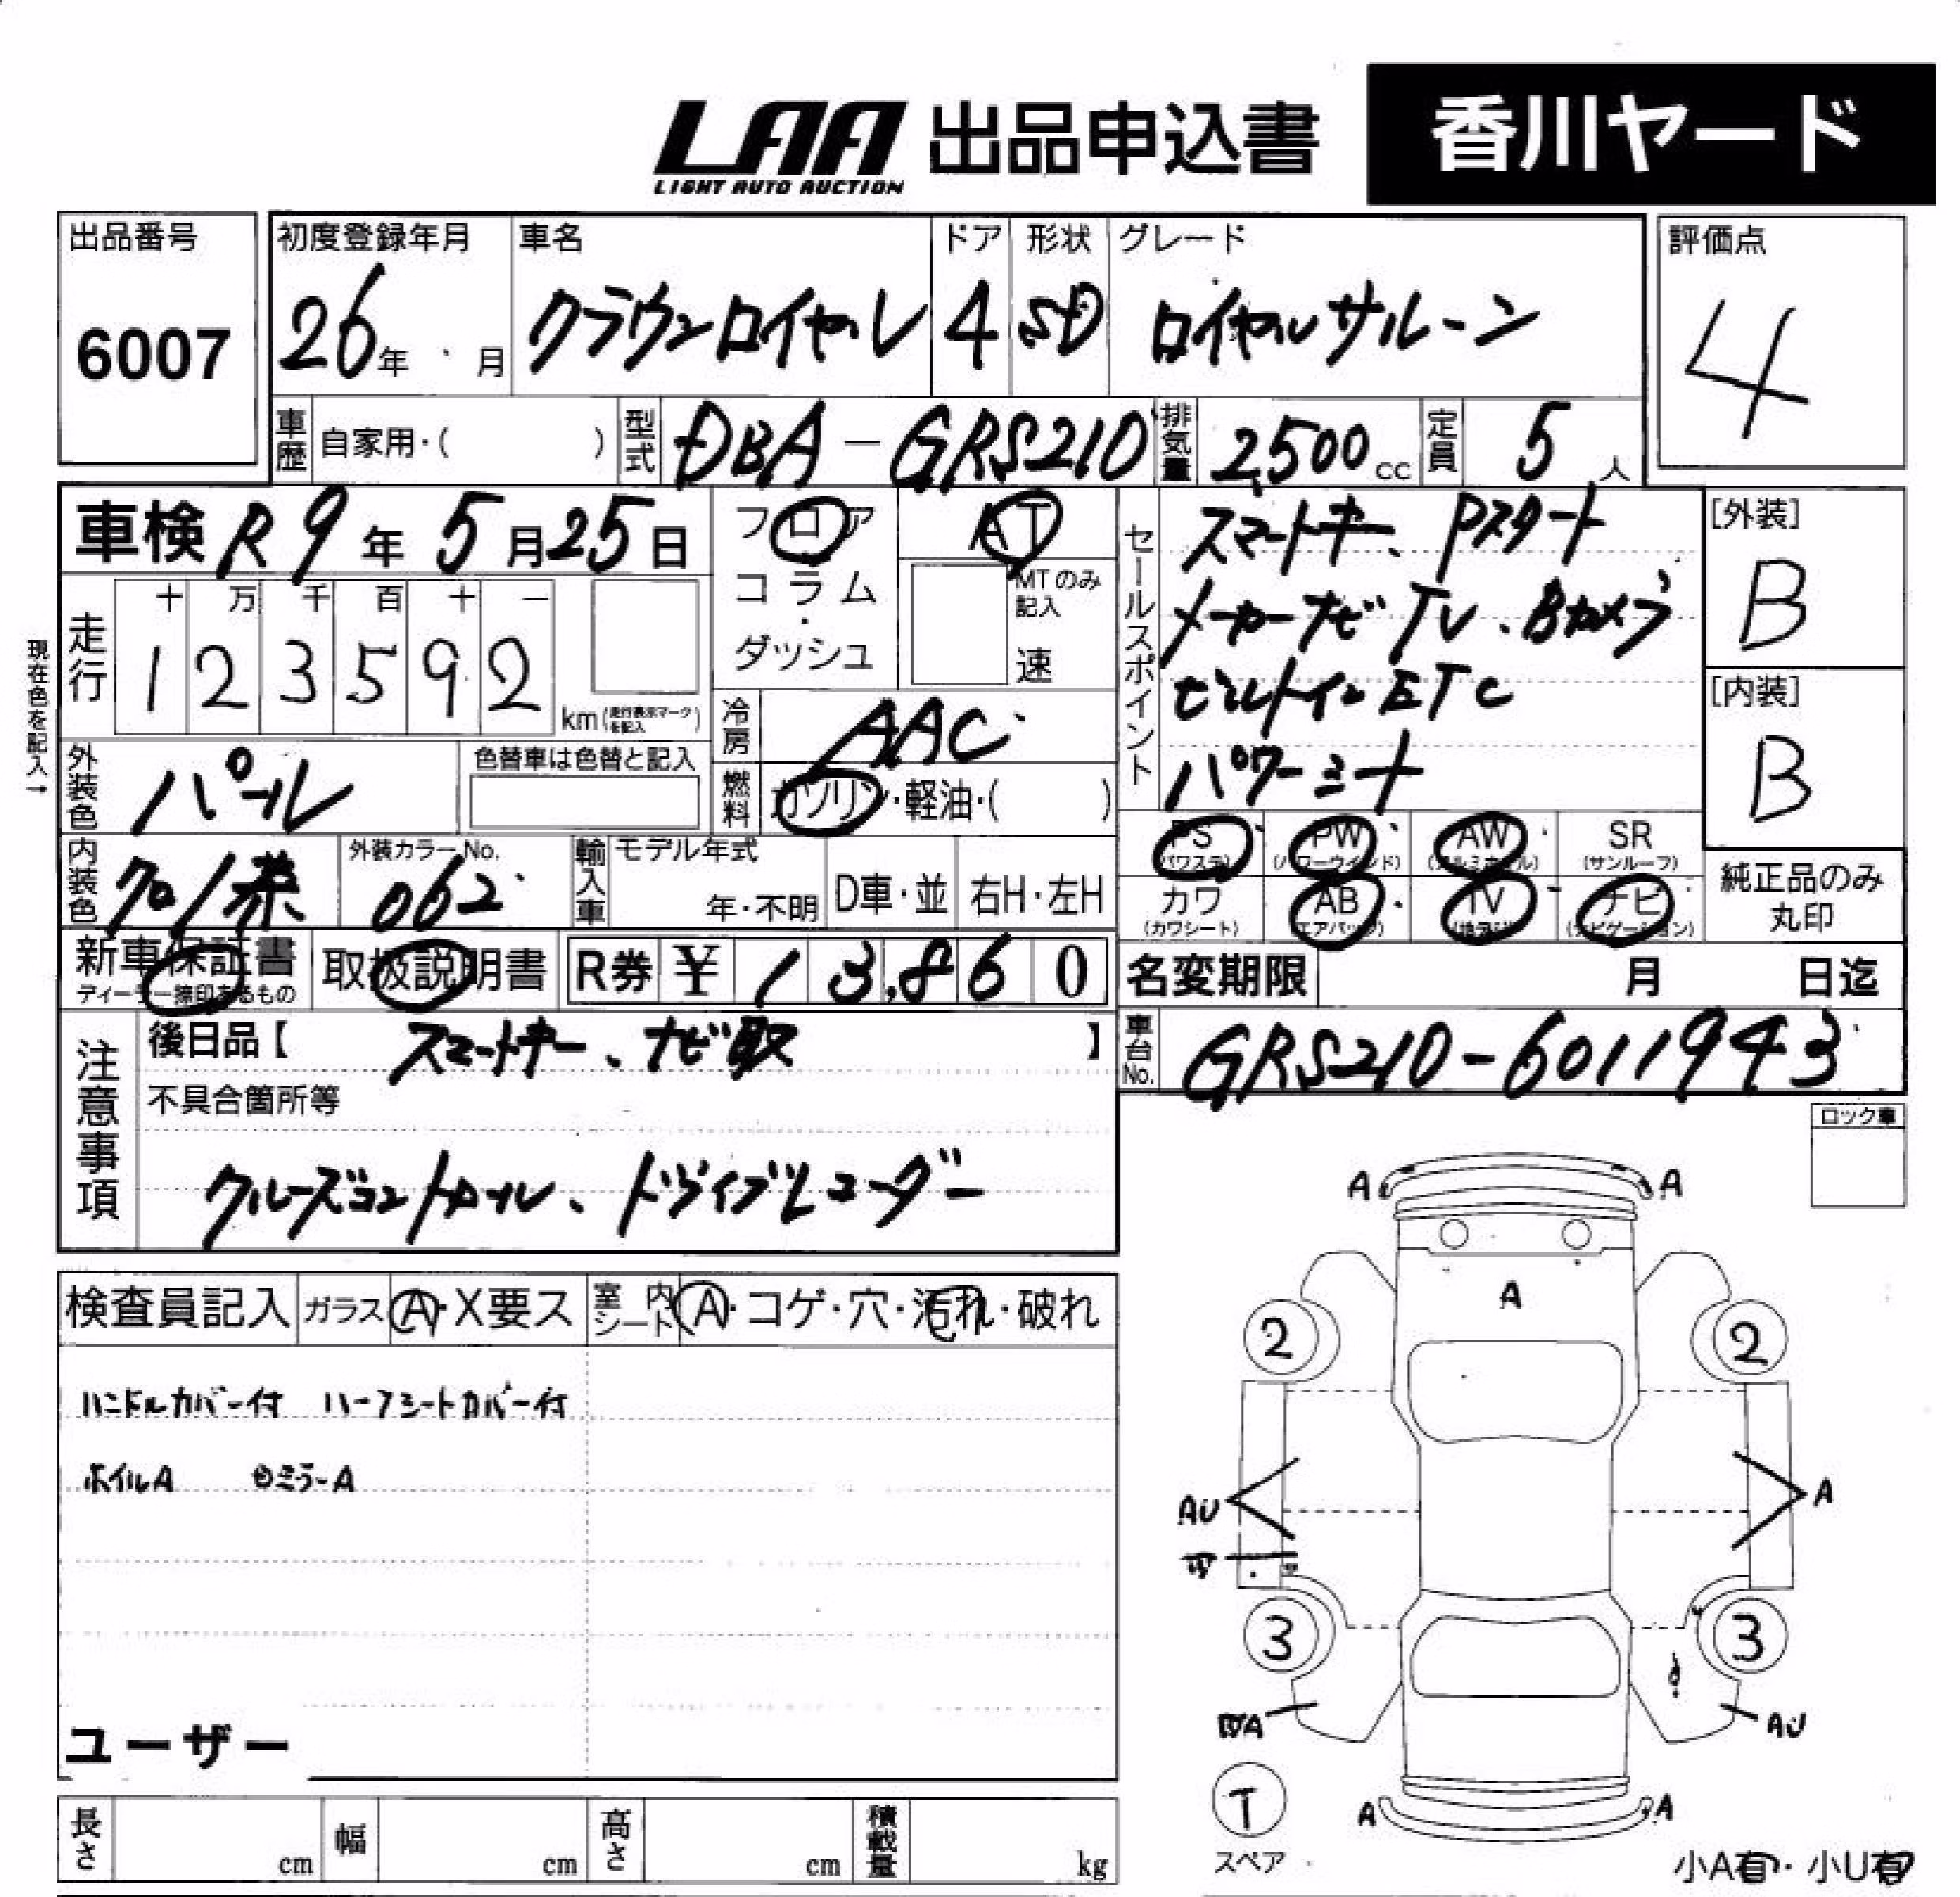 LAA 出品申込書 香川ヤード
LIGHT AUTO AUCTION
出品番号 初度登録年月 車名 ドア 形状 グレード 評価点
6007 26年 月 クラウンロイヤル 4 SD ロイヤルサルーン 4
車歴 自家用・( ) 型式 DBA-GRS210 排気量 2,500cc 定員 5人
車検 R9年5月25日
フロア AT
コラム・ MTのみ記入
ダッシュ 速
走行 十 万 千 百 十 一
1 2 3 5 9 2 km(走行表示マークを記入)
現在色を記入→
冷房 AAC
外装色 パール 色替車は色替と記入
燃料 ガソリン・軽油・( )
内装色 クロ/茶 外装カラーNo. 062
輸入車 モデル年式 年・不明 D車・並 右H・左H
新車保証書 ディーラー捺印あるもの 取扱説明書 R券 ¥ 13,860
セールスポイント スマートキー、Pスタート
メーカーナビ TV、Bカメラ
ビルトインETC
パワーシート
[外装] B
[内装] B
PS(パワステ) PW(パワーウインド) AW(アルミホイール) SR(サンルーフ)
カワ(カワシート) AB(エアバッグ) TV(地デジ) ナビ(ナビゲーション)
純正品のみ丸印
名変期限 月 日迄
車台No. GRS210-6011943
注意事項
後日品【 スマートキー、ナビ取 】
不具合箇所等
クルーズコントロール、ドライブレコーダー
ロック車
検査員記入 ガラス A・X要ス 室内シート A・コゲ・穴・汚れ・破れ
ハンドルカバー付 ハーフシートカバー付
ホイルA ミラーA
ユーザー
A A
A
2 2
AU A
3 3
A AU
T
スペア
A A
小A有・小U有
長さ cm 幅 cm 高さ cm 積載量 kg